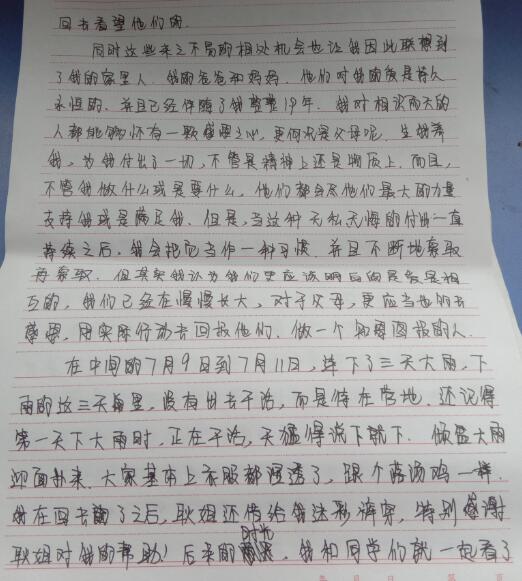 回去看望他们的.
同时这些来之不易的相处机会也让我因此联想到
了我的家里人.我的爸爸和妈妈.他们对我的爱是持久
永恒的.并且已经伴随了我整整19年.我对相识两天的
人都能够怀有一颗感恩之心,更何况是父母呢.生我养
我,为我付出了一切,不管是精神上还是物质上.而且,
不管我做什么或是要什么.他们都会尽他们最大的力量
支持我或是满足我.但是,当这种无私无悔的付出一直
持续之后,我会把它当作一种习惯.并且不断地索取
再索取.但其实我认为我们更应该明白的是爱是相
互的,我们已经在慢慢长大,对于父母,更应当也的去
感恩,用实际行动去回报他们.做一个知恩图报的人.
在中间的7月9日到7月11日,连下了三天大雨,下
雨的这三天里,没有出去干活,而是待在营地.还记得
第一天下大雨时,正在干活,天猛得说下就下.倾盆大雨
迎面扑来.大家基本上衣服都湿透了,跟个落汤鸡一样.
我在回去了之后,耿姐还传给我迷彩裤穿,特别感谢
耿姐对我的帮助!后来的时光,我和同学们就一起看了